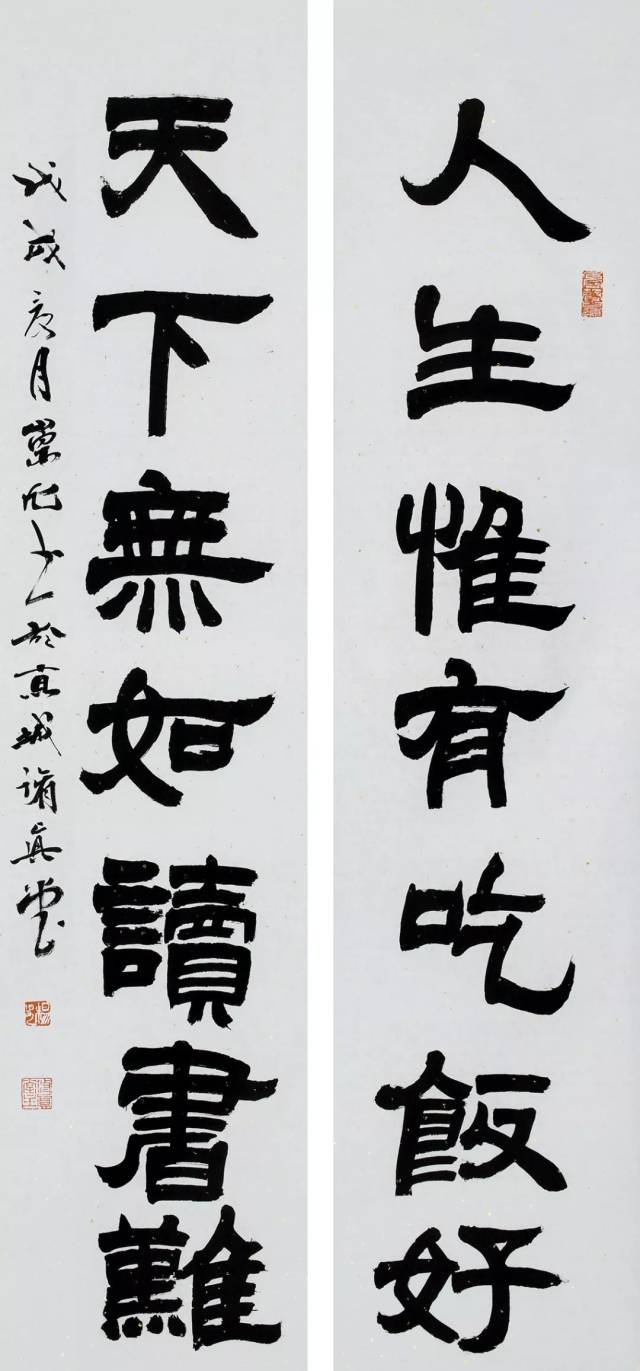 人生惟有吃飯好
天下無如讀書難
戊戌
月
於京城
真堂